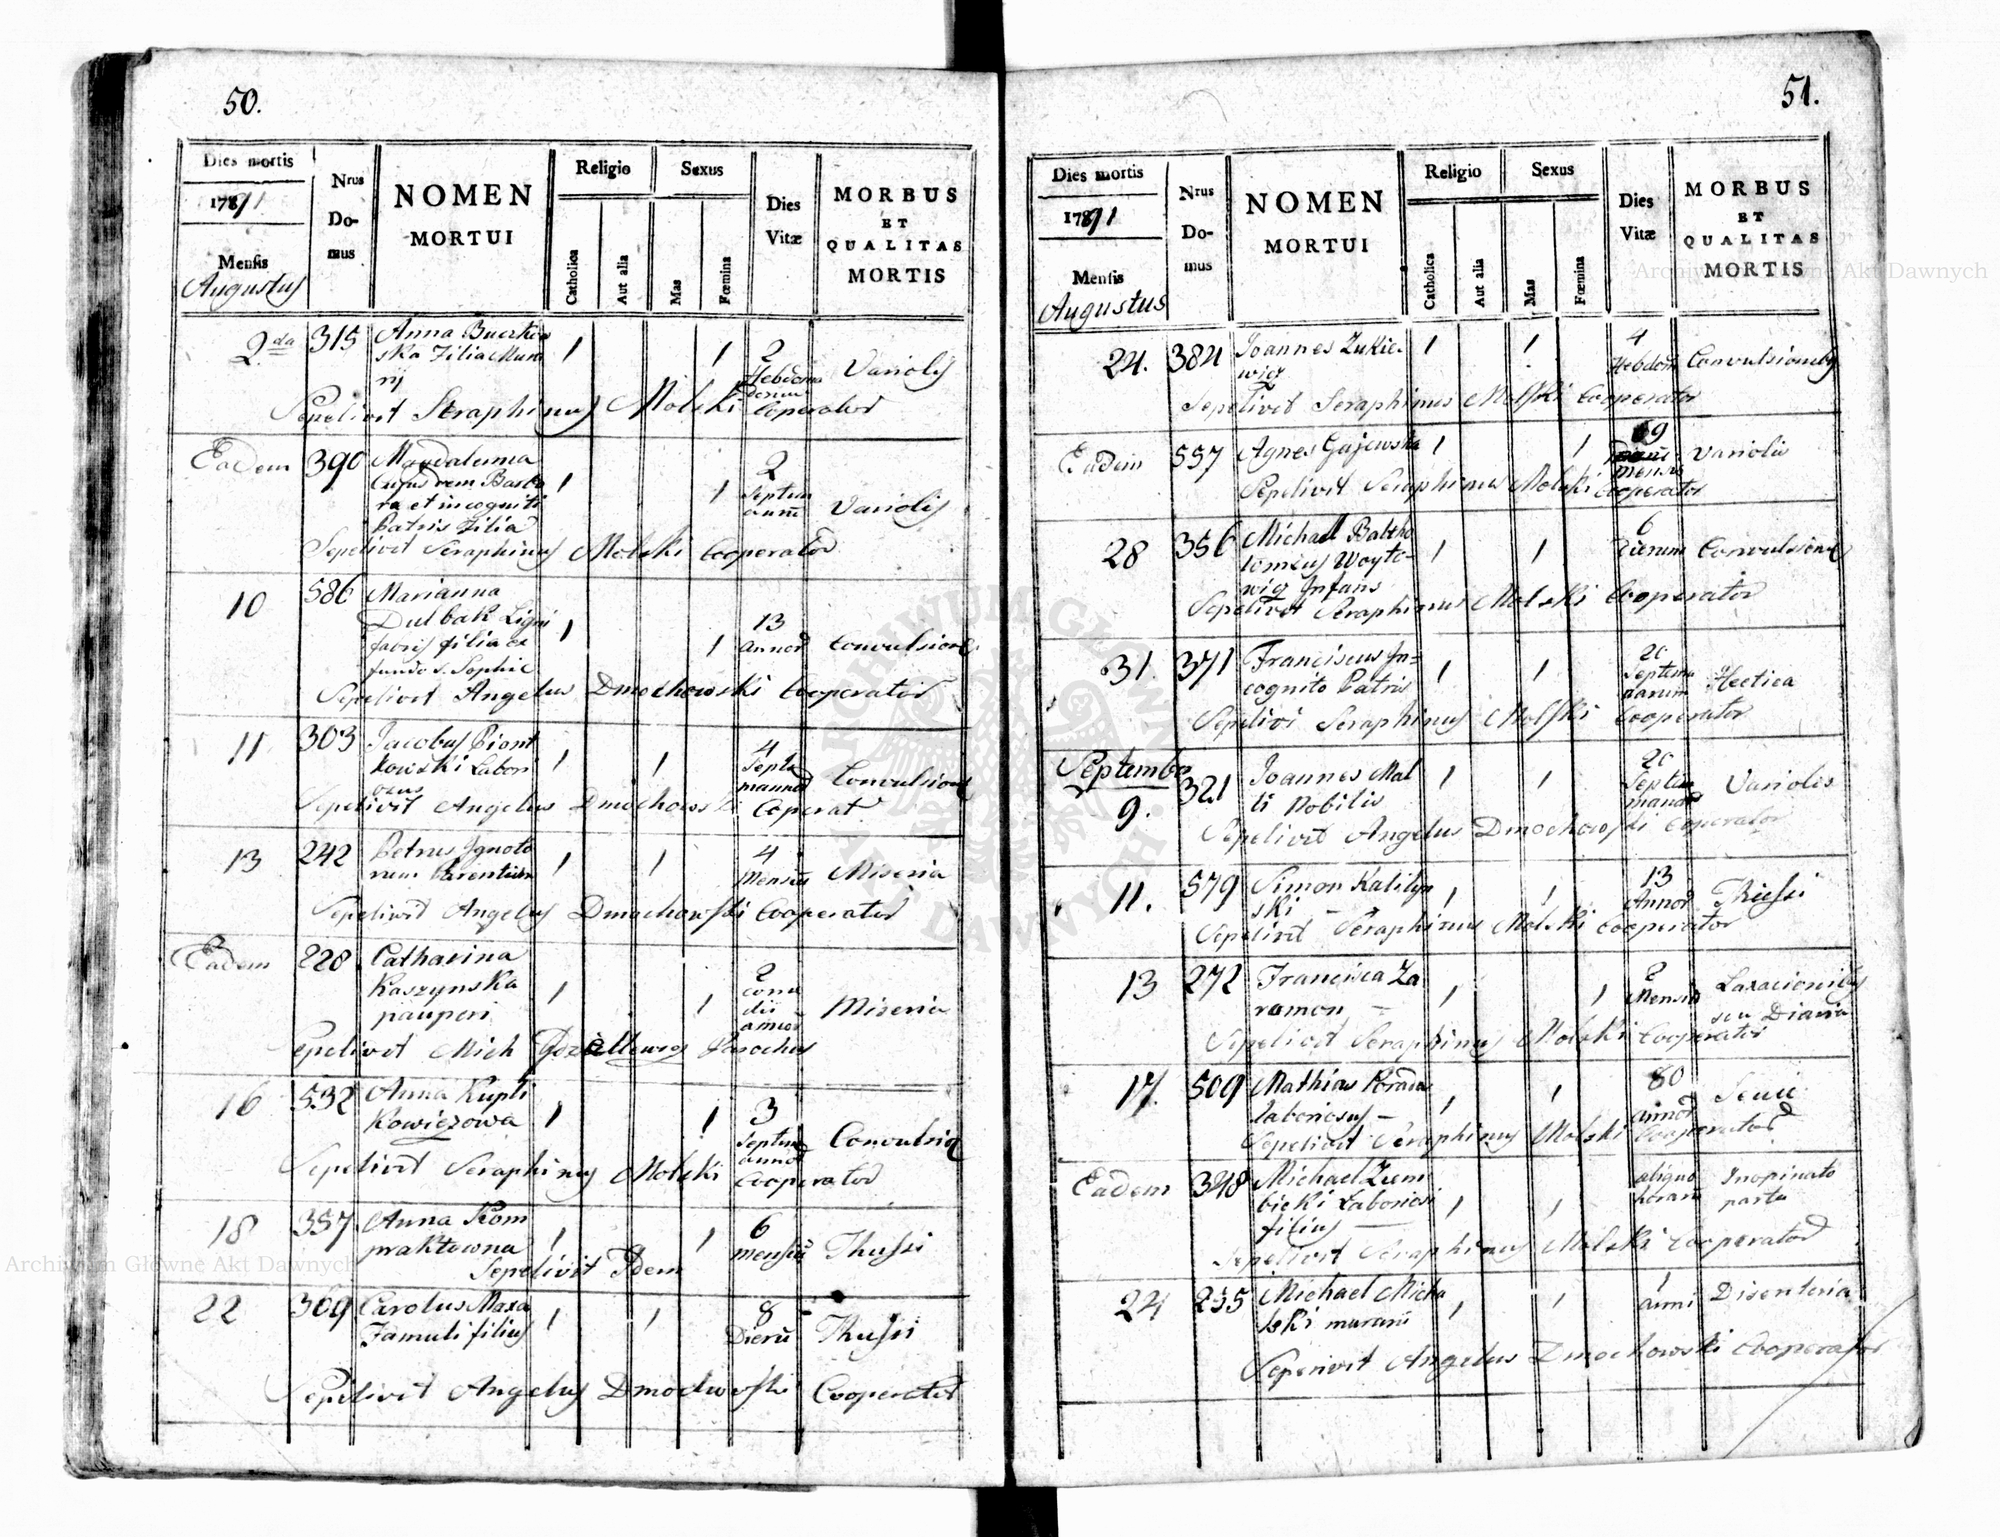 50.
Dies mortis
1791
Mensis
Augustus
Nrus
Do-
mus
NOMEN
MORTUI
Religio
Catholica
Aut alia
Sexus
Mas
Fœmina
Dies
Vitæ
MORBUS
ET
QUALITAS
MORTIS
2da 315 Anna
ska Filia
1 1 2 Variolis
Sepelivit Seraphinus Molski Cooperator
Eadem 390 Magdalena
ra et incogniti
Patris Filia
1 1 2 Variolis
Sepelivit Seraphinus Molski Cooperator
10 586 Marianna
Dulbak Ligni
fabri filia ex
fundo s. Sophie
1 1 13
annor Convulsione
Sepelivit Angelus Dmochowski Cooperator
11 303 Jacobus Piont
kowski Labori
osus
1 1 4
Convulsione
Sepelivit Angelus Dmochowski Coperat.
13 242 Petrus Ignoto
rum Parentum
1 1 4
Mensiu Miseria
Sepelivit Angelus Dmochowski Cooperator
Eadem 228 Catharina
Kaszynska
pauperi
1 1 2
Miseria
Sepelivit Mich Parochus
16 532 Anna Kupti
kowiczowa
1 1 3
Sepelivit Seraphinus Molski Cooperator
18 357 Anna Kom
praktowna
1 1 6
mensiu Thussi
Sepelivit Idem
22 369 Carolus Maxa
Famuli filius
1 1 8
Dieru Thussi
Sepelivit Angelus Dmochowski Cooperator
51.
Dies mortis
1791
Mensis
Augustus
Nrus
Do-
mus
NOMEN
MORTUI
Religio
Catholica
Aut alia
Sexus
Mas
Fœmina
Dies
Vitæ
MORBUS
ET
QUALITAS
MORTIS
24. 384 Joannes Zukie-
wicz
1 1 4
Hebdom Convulsionibus
Sepelivit Seraphinus Molski Cooperator
Eadem 557 Agnes Gajewska
1 1 9
mensiu Variolis
Sepelivit Seraphinus Molski Cooperator
28 356 Michael
Woyto-
wicz Infans
1 1 6
Dierum Convulsione
Sepelivit Seraphinus Molski Cooperator
31. 371 Franciscus In-
cognito Patris
1 1 20
Hectica
Sepelivi Seraphinus Molski Cooperator
September
9. 321 Joannes Mal
ti Nobilis
1 1 20
Variolis
Sepelivit Angelus Dmochowski Coperator
11. 579 Simon
ski –
1 1 13
Annor Thussi
Sepelivit Seraphinus Molski Cooperator
13 272 Francisca Za
ramon –
1 1 2
Mensiu
seu Diaria
Sepelivit Seraphinus Molski Cooperator
17. 509 Mathias
laboriosus –
1 1 80
annor
Sepelivit Seraphinus Molski Cooperator
Eadem 348 Michael Ziem
bicki Laboriosi
filius –
1 1 aliquot
horaru Inopinato
partu
Sepelivit Seraphinus Molski Cooperator
24 235 Michael Micha
lski
1 1 1
anni Disenteria
Sepelivit Angelus Dmochowski Cooperator
ARCHIWUM GŁÓWNE AKT DAWNYCH
Archiwum Główne Akt Dawnych
Archiwum Główne Akt Dawnych